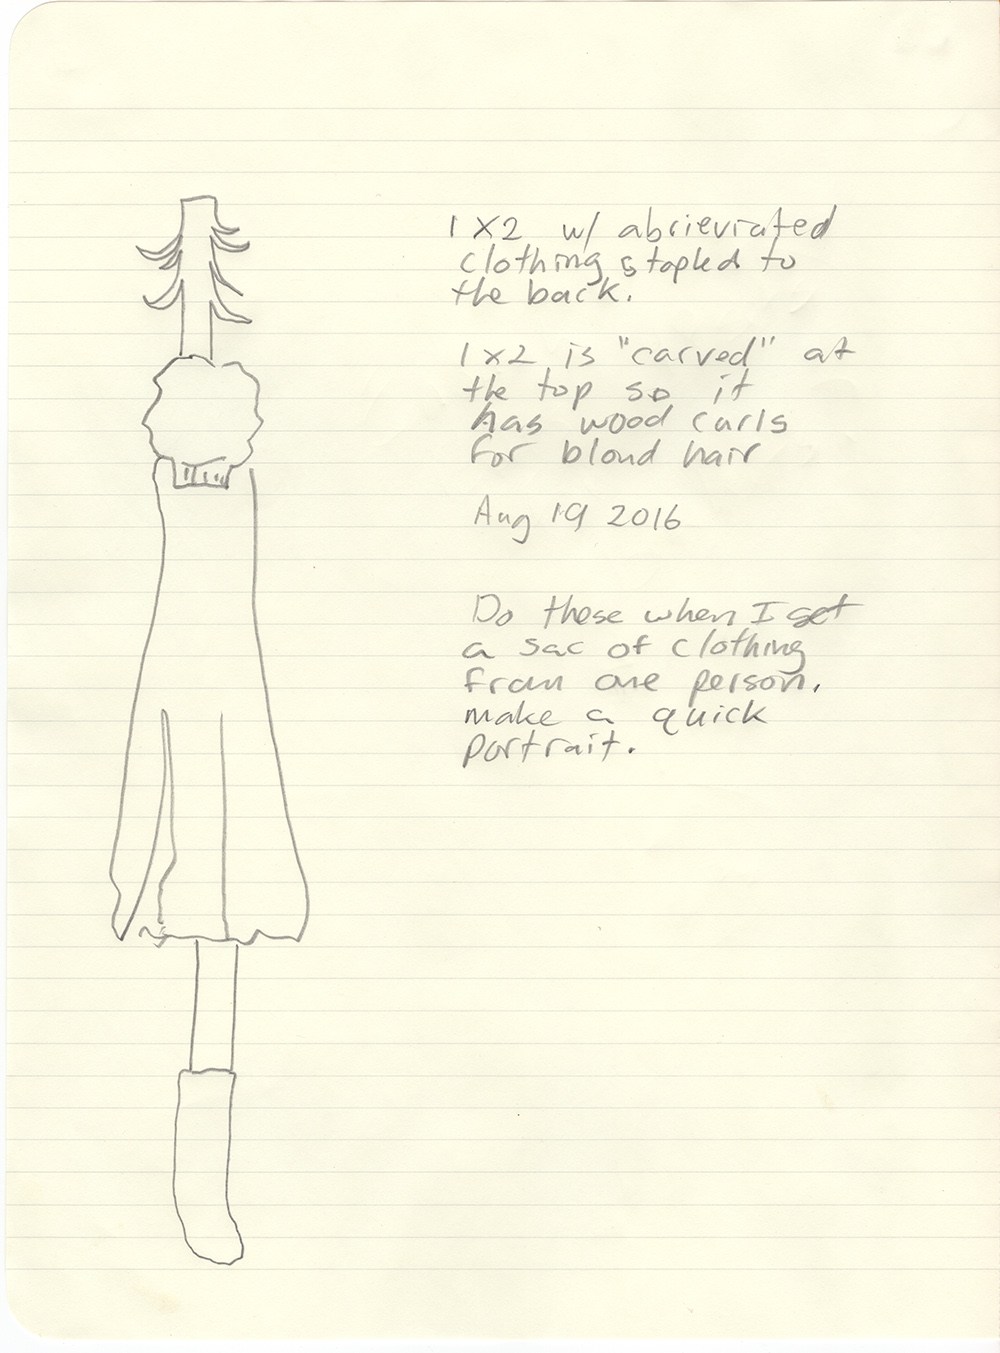 1 X 2 w/ abrieviated
clothing stapled to
the back.
1 x 2 is "carved" at
the top so it
has wood curls
for blond hair
Aug 19 2016
Do these when I get
a sac of clothing
from one person.
make a quick
portrait.